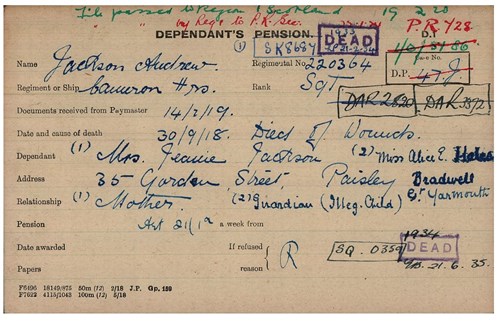 File passed to Region 1 Scotland 19 2 20
Regs to P.K. Sec.
P.R. 428
DEPENDANT'S PENSION.
DEAD
D.I.
SK8687
Name Jackson Andrew. Regimental No. 220364
D.P.
Regiment or Ship Cameron Hrs. Rank Sgt
Documents received from Paymaster 14/2/19.
DAR 2820
DAR
Date and cause of death 30/9/18. Died of Wounds.
Dependant (1) Mrs. Jeanie Jackson (2) Miss Alice E.
Address 35 Gordon Street, Paisley Bradwell
Gt. Yarmouth
Relationship (1) Mother (2) Guardian (Illeg. Child)
Pension Art 21/1a a week from
1934
Date awarded If refused reason R SQ. 0359 DEAD
Papers 21.6.35.
F6496 18149/875 50m (12) 2/18 J.P. Gp. 159
F7622 4118/1043 100m (12) 5/18